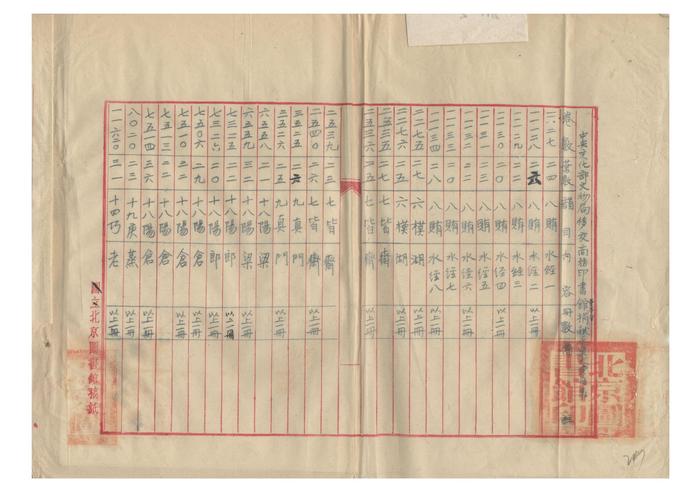 中央文化部文物局移交商務印書館捐獻
卷數 葉數 韻目 內容 冊數
二七 二四 八賄 水經一
一一一二八 二六 八賄 水經二 以上一冊
一一一二九 二二 八賄 水經三
一一一三〇 二〇 八賄 水經四 以上一冊
一一一三一 二一 八賄 水經五
一一一三二 二〇 八賄 水經六 以上一冊
一一一三三 二〇 八賄 水經七
一一一三四 二八 八賄 水經八 以上一冊
二二七五 二五 六模 湖
二二七六 二五 六模 湖 以上一冊
二五三五 二七 七皆 齋
二五三六 二五 七皆 齋 以上一冊
二五三九 二三 七皆 齋
二五四〇 二六 七皆 齋 以上一冊
三五二五 二六 九真 門
三五二六 二五 九真 門 以上一冊
六五五八 二一 十八陽 梁
六五五九 三二 十八陽 梁 以上一冊
七三二五 二二 十八陽 郎
七三二六 二〇 十八陽 郎 以上一冊
七五〇六 二九 十八陽 倉 以上一冊
七五一〇 二二 十八陽 倉 以上一冊
七五一三 二二 十八陽 倉
七五一四 三六 十八陽 倉 以上一冊
八〇二〇 二三 十九庚 蒸 以上一冊
一一六二〇 三一 十四巧 老
國立北京圖書館
北京圖書館